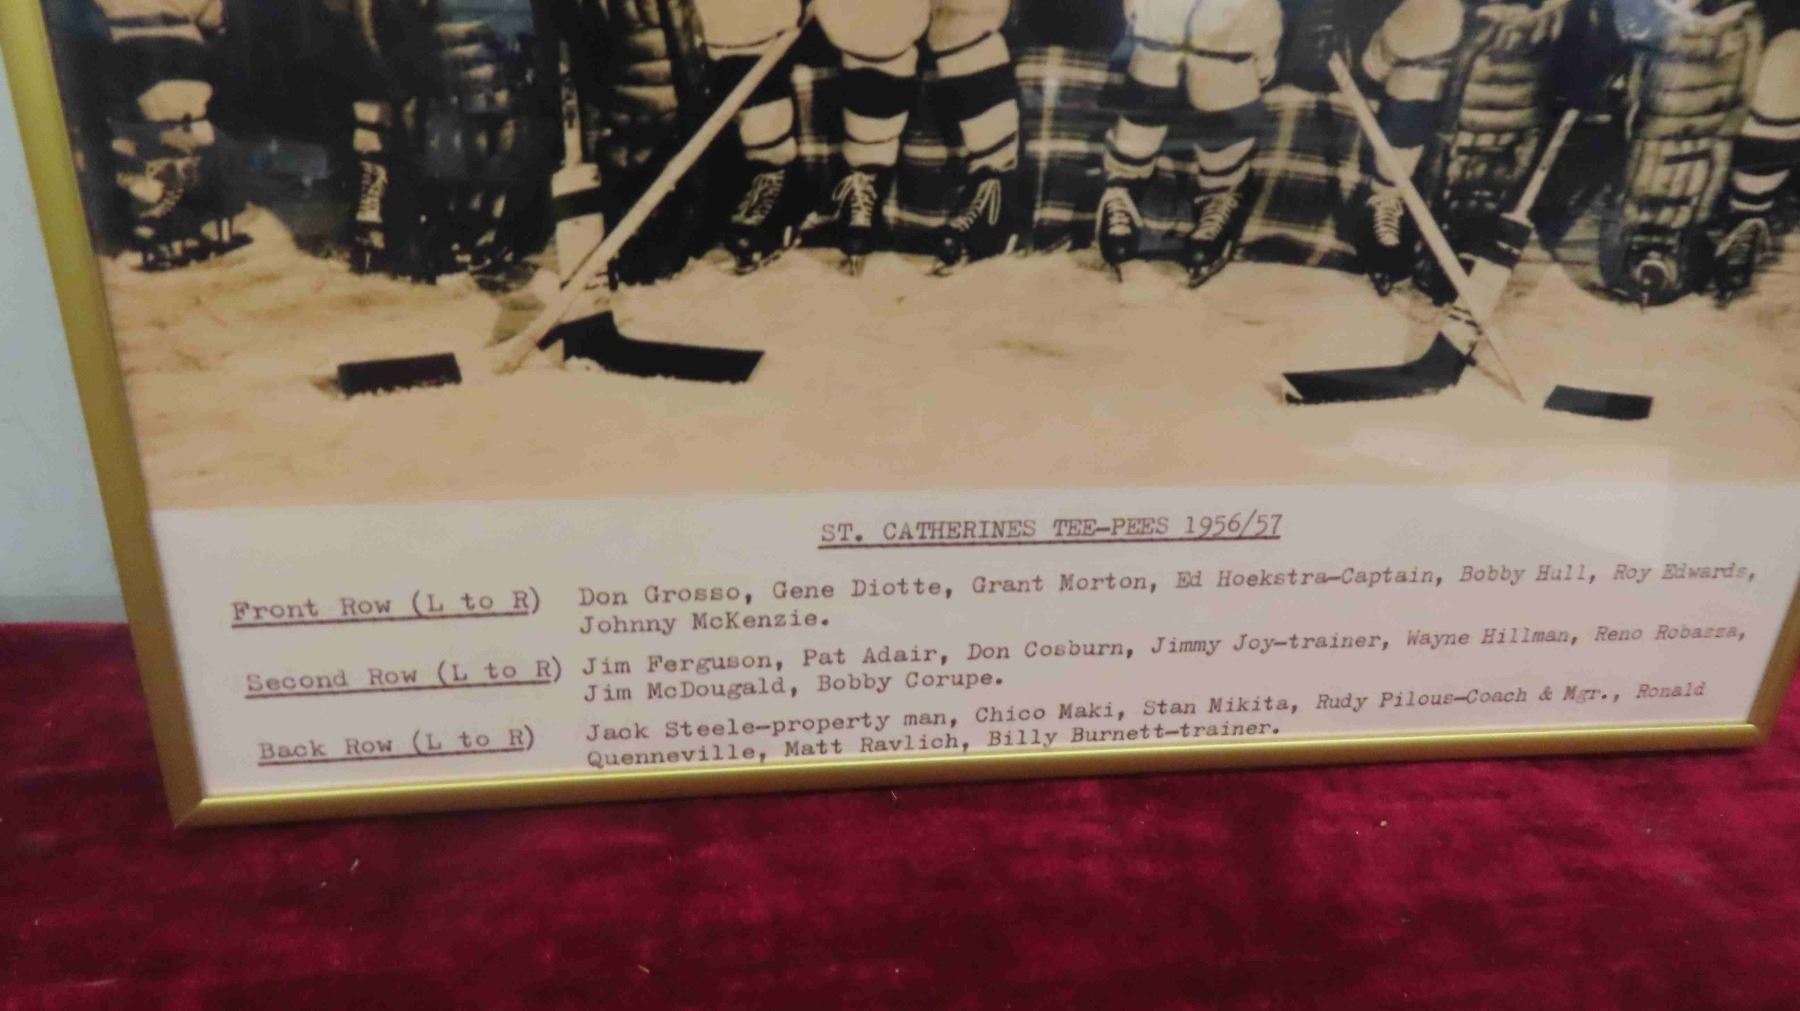 ST. CATHERINES TEE-PEES 1956/57
Front Row (L to R) Don Grosso, Gene Diotte, Grant Morton, Ed Hoekstra-Captain, Bobby Hull, Roy Edwards,
Johnny McKenzie.
Second Row (L to R) Jim Ferguson, Pat Adair, Don Cosburn, Jimmy Joy-trainer, Wayne Hillman, Reno Robazza,
Jim McDougald, Bobby Corupe.
Back Row (L to R) Jack Steele-property man, Chico Maki, Stan Mikita, Rudy Pilous-Coach & Mgr., Ronald
Quenneville, Matt Ravlich, Billy Burnett-trainer.